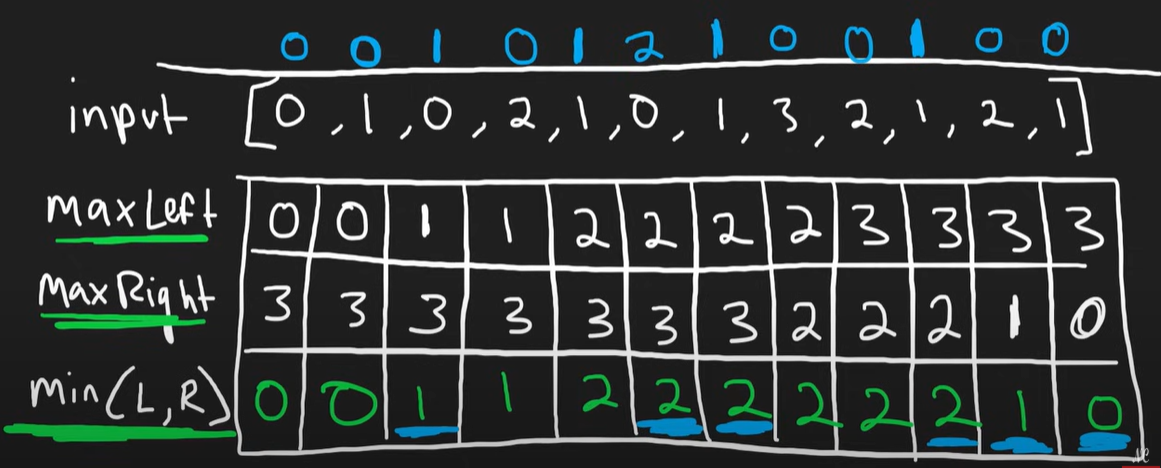 0 0 1 0 1 2 1 0 0 1 0 0
input [0, 1, 0, 2, 1, 0, 1, 3, 2, 1, 2, 1]
maxLeft 0 0 1 1 2 2 2 2 3 3 3 3
MaxRight 3 3 3 3 3 3 3 2 2 2 1 0
Min(L,R) 0 0 1 1 2 2 2 2 2 2 1 0